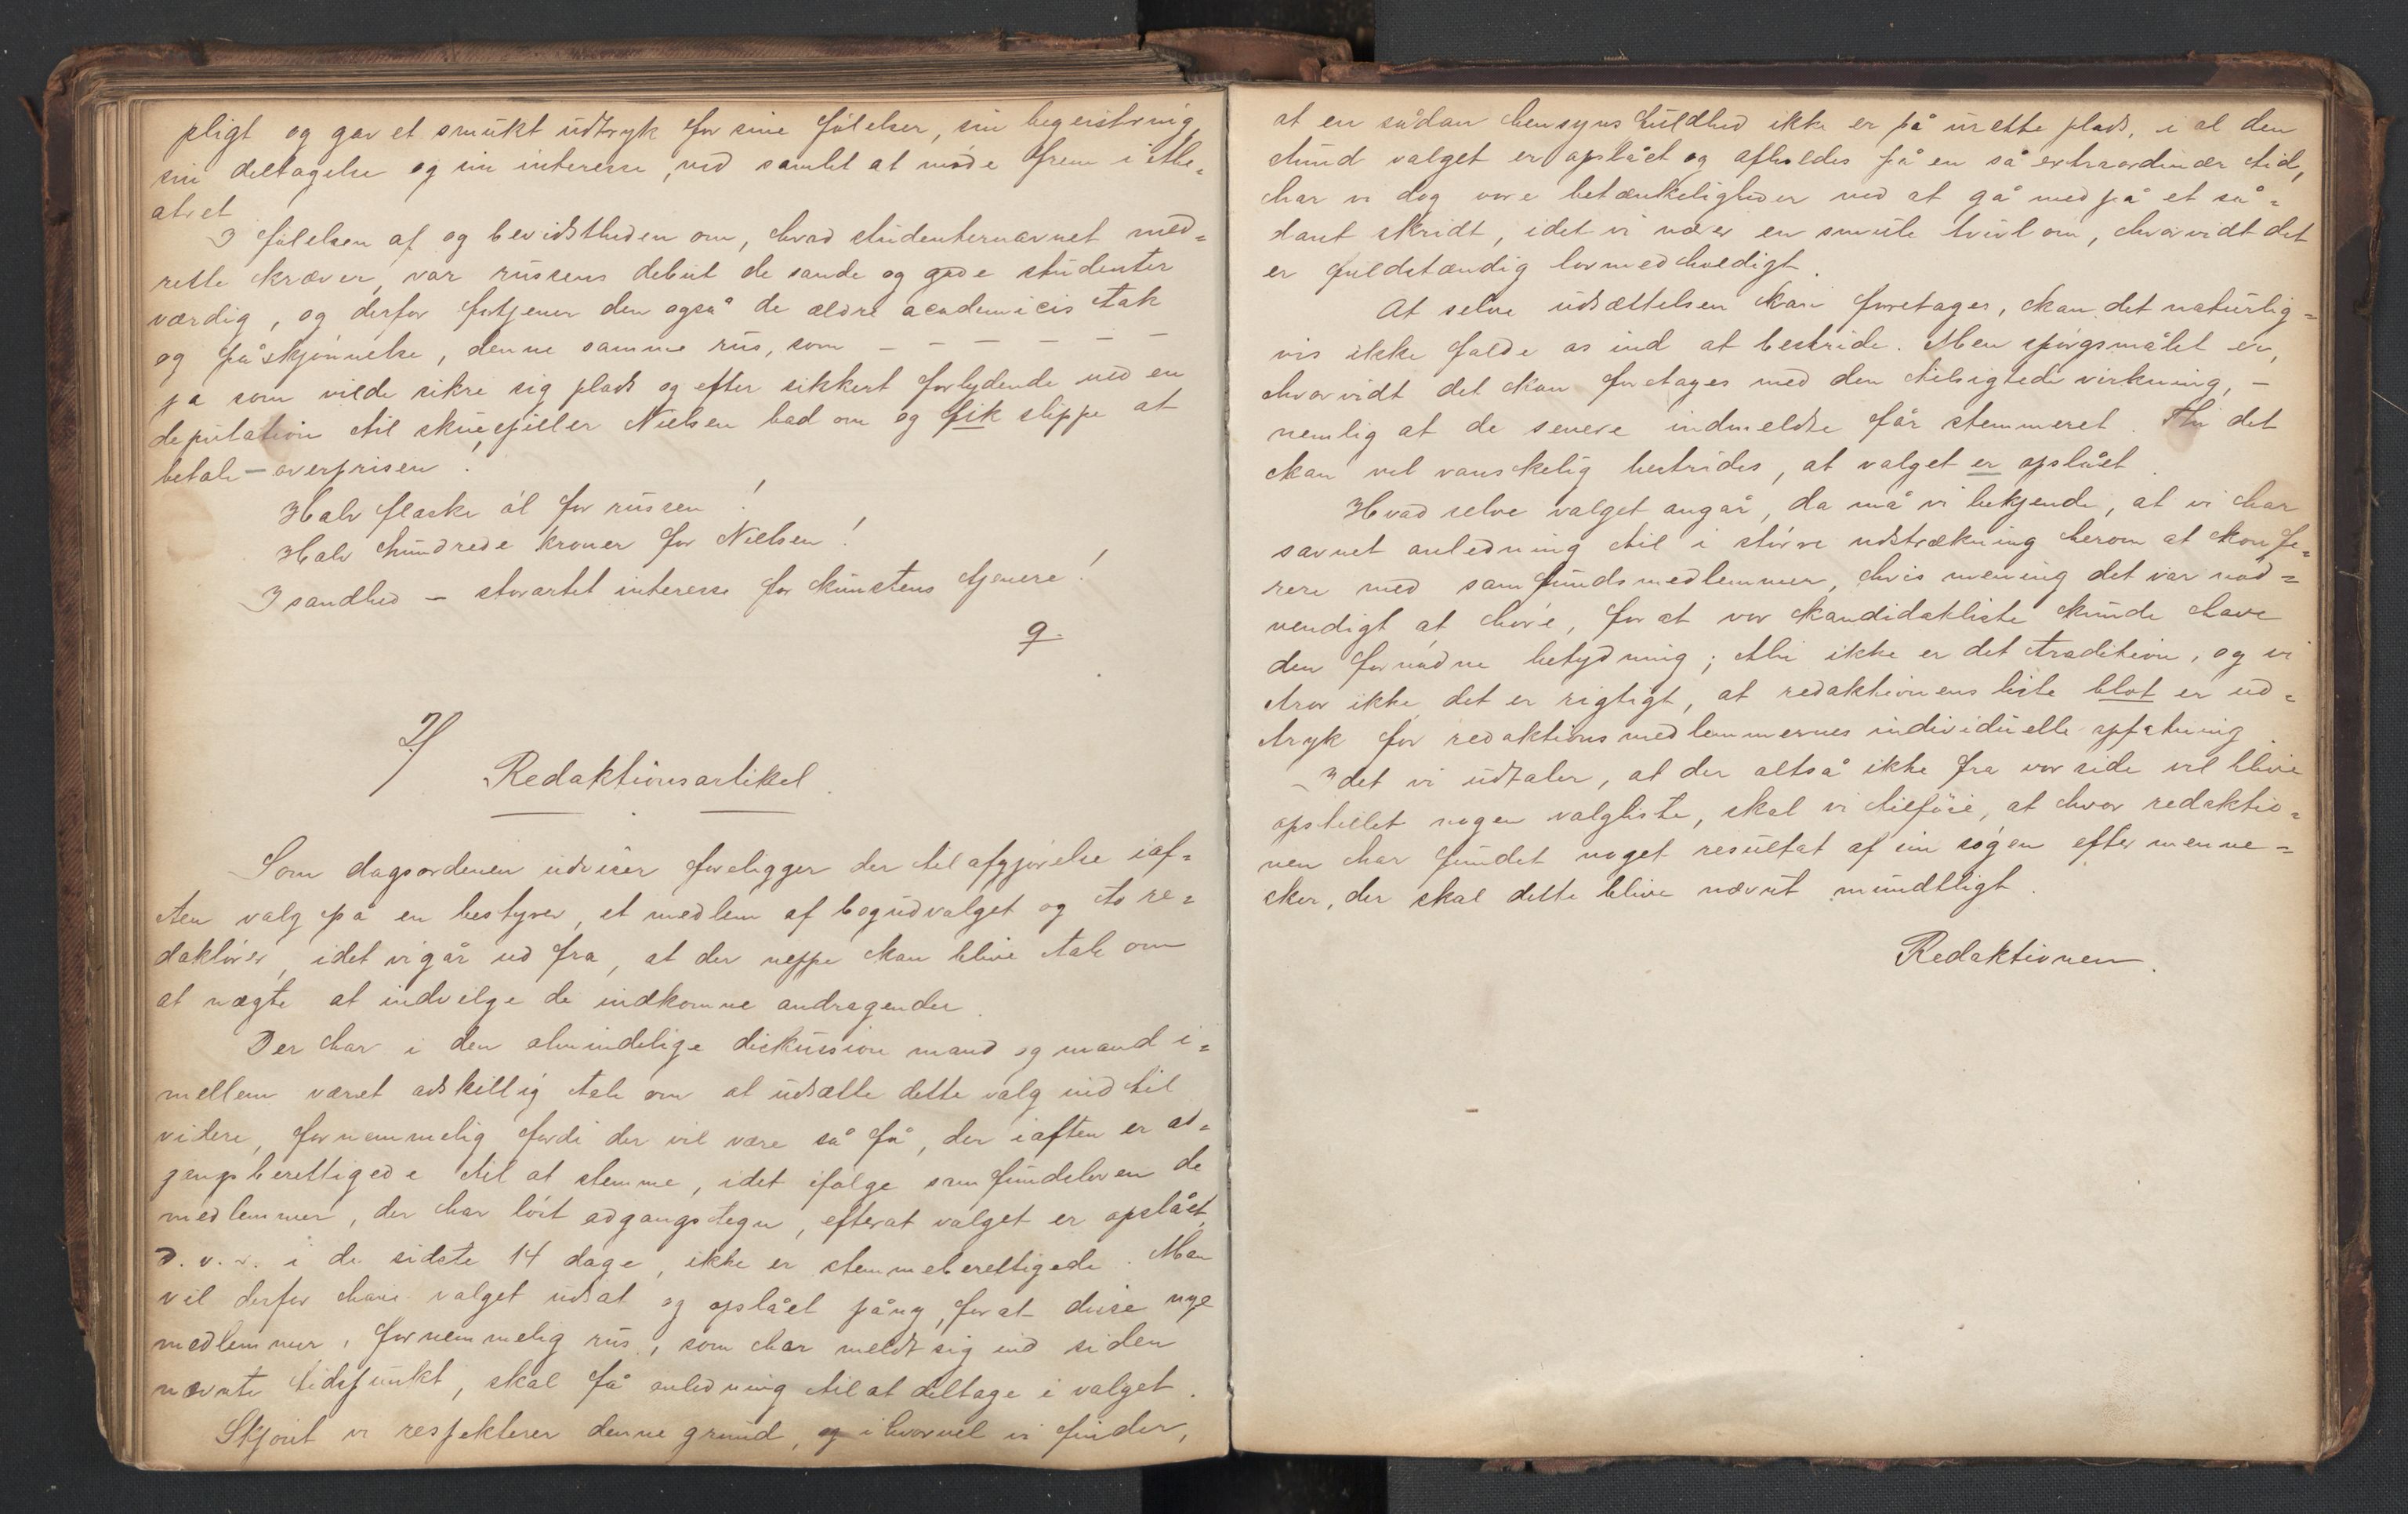 pligt og gav et smukt udtryk for sine følelser, sin begeistring,
sin deltagelse og sin interesse, ved samlet at møde frem i the=
atret
I følelsen af og bevidstheden om, hvad studenternavnet med=
rette kræver, var russens debut de sande og gode studenter
værdig, og derfor fortjener den også de ældre academicis tak
og påskjønnelse, denne samme rus, som — — — — — —
ja som vilde sikre sig plads og efter sikkert forlydende ved en
deputation til skuespiller Nielsen bad om og fik slippe at
betale — overprisen!
Halv flaske øl for russen!
Halv hundrede kroner for Nielsen!
I sandhed — storartet interesse for kunstens tjenere!
q.
7/
Redaktionsartikel.
Som dagsordenen udviser foreligger der til afgjørelse iaf=
ten valg på en bestyrer, et medlem af bogudvalget og to re=
daktører, idet vi går ud fra, at der neppe kan blive tale om
at nægte at indvilge de indkomne andragender.
Der har i den almindelige diskussion mand og mand i=
mellem været adskillig tale om at udsætte dette valg indtil
videre, fornemmelig fordi der vil være så få, der iaften er ad=
gangsberettigede til at stemme, idet ifølge samfundsloven de
medlemmer, der har løst adgangstegn, efterat valget er opslået,
d. v. s. i de sidste 14 dage, ikke er stemmeberettigede. Man
vil derfor have valget udsat og opslået påny, for at disse nye
medlemmer, fornemmelig rus, som har meldt sig ind siden
nævnte tidspunkt, skal få anledning til at deltage i valget.
Skjønt vi respekterer denne grund, og ihvorvel vi finder,
at en sådan hensynsfuldhed ikke er på urette plads, i al den
stund valget er opslået og afholdes på en så extraordinær tid,
har vi dog vore betænkeligheder ved at gå med på et så=
dant skridt, idet vi nærer en smule tvivl om, hvorvidt det
er fuldstændig lovmedholdigt.
At selve udsættelsen kan foretages, kan det naturlig=
vis ikke falde os ind at bestride. Men spørgsmålet er,
hvorvidt det kan foretages med den tilsigtede virkning, —
nemlig at de senere indmeldte får stemmeret. Thi det
kan vel vanskelig bestrides, at valget er opslået.
Hvad selve valget angår, da må vi bekjende, at vi har
savnet anledning til i større udstrækning herom at konfe=
rere med samfundsmedlemmer, hvis mening det var nød=
vendigt at høre, for at vor kandidatliste kunde have
den fornødne betydning; thi ikke er det tradition, og vi
tror ikke det er rigtigt, at redaktionens liste blot er ud=
tryk for redaktionsmedlemmernes individuelle opfatning.
Idet vi udtaler, at der altså ikke fra vor side vil blive
opstillet nogen valgliste, skal vi tilføie, at hvor redaktio=
nen har fundet noget resultat af sin søgen efter menne=
sker, der skal dette blive nævnt mundtligt.
Redaktionen.